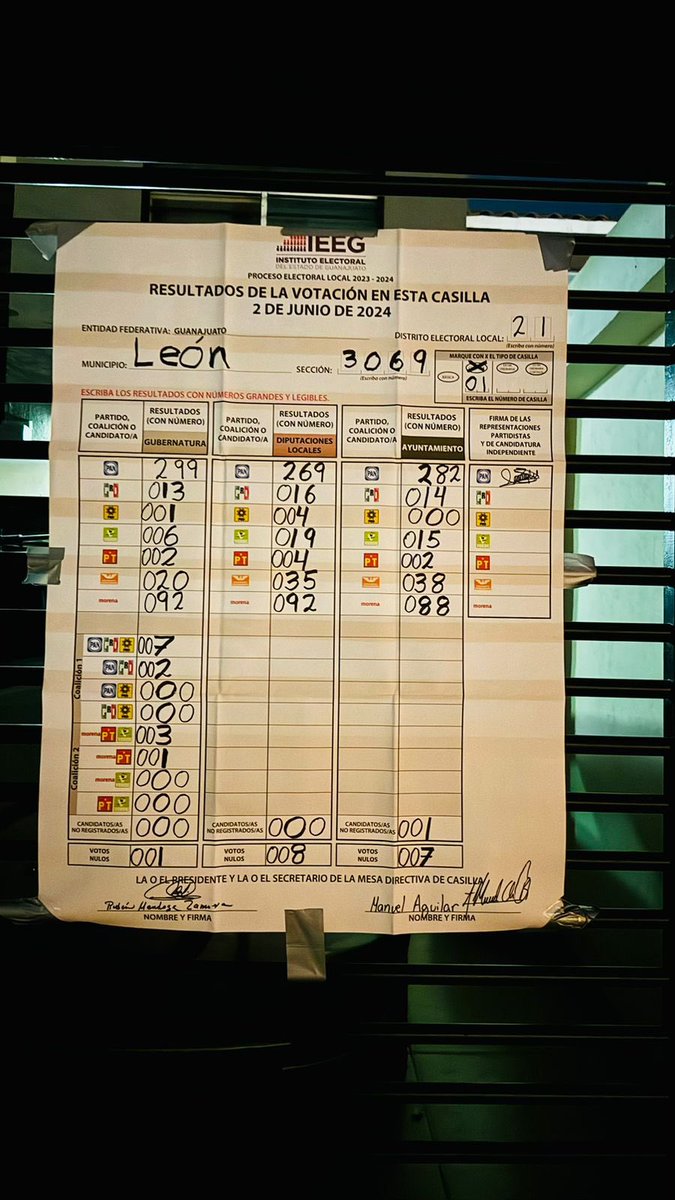 IEEG
INSTITUTO ELECTORAL
DEL ESTADO DE GUANAJUATO
PROCESO ELECTORAL LOCAL 2023 - 2024
RESULTADOS DE LA VOTACIÓN EN ESTA CASILLA
2 DE JUNIO DE 2024
ENTIDAD FEDERATIVA: GUANAJUATO DISTRITO ELECTORAL LOCAL: 21
(Escriba con número)
MUNICIPIO: León SECCIÓN: 3069
(Escriba con número)
MARQUE CON X EL TIPO DE CASILLA
BÁSICA
01
ESCRIBA EL NÚMERO DE CASILLA
ESCRIBA LOS RESULTADOS CON NÚMEROS GRANDES Y LEGIBLES.
PARTIDO, COALICIÓN O CANDIDATO/A RESULTADOS (CON NÚMERO) GUBERNATURA PARTIDO, COALICIÓN O CANDIDATO/A RESULTADOS (CON NÚMERO) DIPUTACIONES LOCALES PARTIDO, COALICIÓN O CANDIDATO/A RESULTADOS (CON NÚMERO) AYUNTAMIENTO FIRMA DE LAS REPRESENTACIONES PARTIDISTAS Y DE CANDIDATURA INDEPENDIENTE
PAN 299 PAN 269 PAN 282 PAN
PRI 013 PRI 016 PRI 014 PRI
PRD 001 PRD 004 PRD 000 PRD
006 019 015
PT 002 PT 004 PT 002 PT
020 035 038
morena 092 morena 092 morena 088 morena
Coalición 1
PAN PRI PRD 007
PAN PRI 002
PAN PRD 000
PRI PRD 000
Coalición 2
morena PT 003
morena PT 001
morena 000
PT 000
CANDIDATOS/AS NO REGISTRADOS/AS 000 CANDIDATOS/AS NO REGISTRADOS/AS 000 CANDIDATOS/AS NO REGISTRADOS/AS 001
VOTOS NULOS 001 VOTOS NULOS 008 VOTOS NULOS 007
LA O EL PRESIDENTE Y LA O EL SECRETARIO DE LA MESA DIRECTIVA DE CASILLA
Rubén Mendoza Zamora Manuel Aguilar
NOMBRE Y FIRMA NOMBRE Y FIRMA